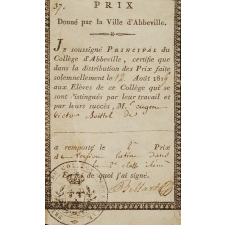 37.
PRIX
Donné par la Ville d'Abbeville.
JE soussigné PRINCIPAL du
Collège d'Abbeville, certifie que
dans la distribution des Prix faite
solemnellement le 12 Août 181
aux Elèves de ce Collège qui se
sont distingués par leur travail et
par leurs succès, M.
Victor
a remporté le 2e Prix
de version latine dans
la 2e classe
de quoi j'ai signé.